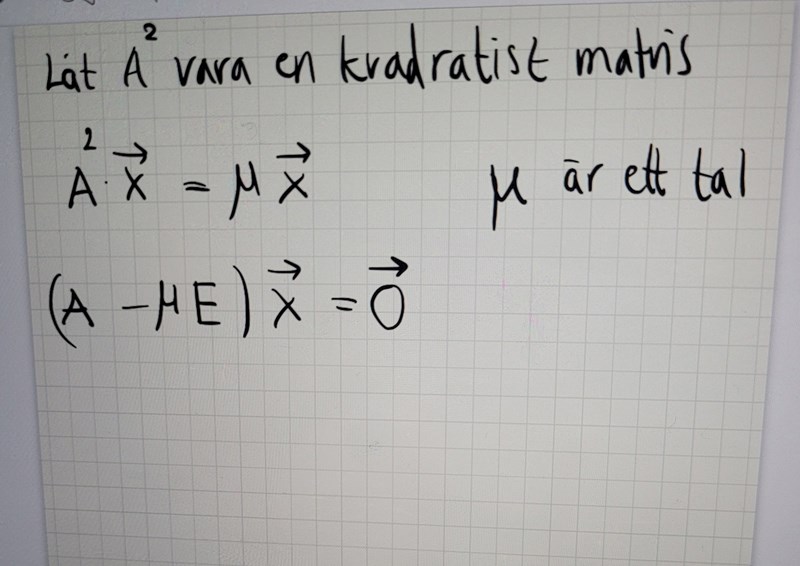 Låt A² vara en kvadratist matris
A²·x⃗ = μx⃗ μ är ett tal
(A - μE)x⃗ = 0⃗